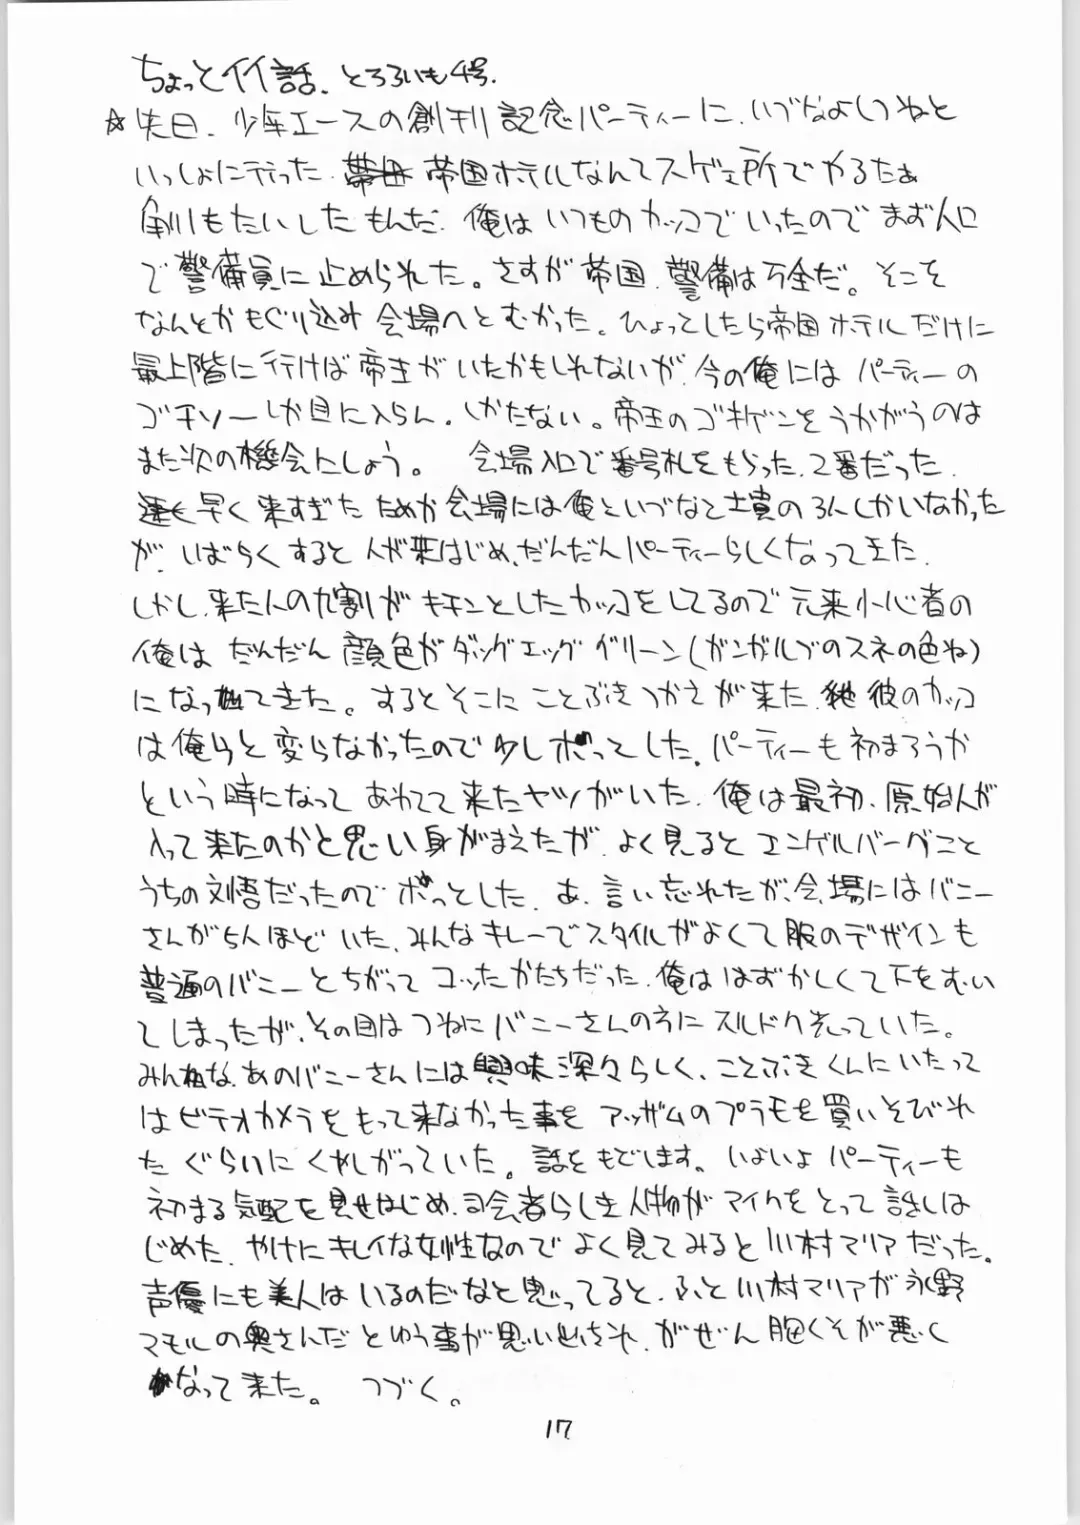 ちょっとイイ話、とろろいも4号.
☆先日、少年エースの創刊記念パーティーに、いづなよしつねと
いっしょに行った. 帝国ホテルなんてスゲェ所でやるたぁ
角川もたいしたもんだ. 俺はいつものカッコでいったのでまず入口
で警備員に止められた。さすが帝国、警備は万全だ。そこを
なんとかもぐり込み会場へとむかった。ひょっとしたら帝国ホテルだけに
最上階に行けば帝王がいたかもしれないが、今の俺にはパーティーの
ゴチソーしか目に入らん. しかたない。帝王のゴキゲンをうかがうのは
また次の機会にしょう。 会場入口で番号札をもらった、2番だった.
早く来すぎたためか会場には俺といづなと士貴の3人しかいなかった
が、しばらくすると人が来はじめ、だんだんパーティーらしくなってきた.
しかし、来た人の九割がキチンとしたカッコをしてるので元来小心者の
俺はだんだん顔色がダックエッググリーン(ガンガルブのスネの色ね)
になってきた。するとそこにことぶきつかさが来た. 彼のカッコ
は俺らと変らなかったので少しホッてした. パーティーも初まろうか
という時になってあわてて来たヤツがいた. 俺は最初、原始人が
入って来たのかと思い身がまえたが、よく見るとエンゲルバーグこと
うちの文悟だったのでホッとした. あ、言い忘れたが、会場にはバニー
さんが5人ほどいた. みんなキレーでスタイルがよくて服のデザインも
普通のバニーとちがってコッたかたちだった. 俺ははずかしくて下をむい
てしまったが、その目はつねにバニーさんの方にスルドク光っていた。
みんな、あのバニーさんには興味深々らしく、ことぶきくんにいたって
はビデオカメラをもって来なかった事をアッザムのプラモを買いそびれ
たぐらいにくやしがっていた。話をもどします。いよいよパーティーも
初まる気配を見せはじめ、司会者らしき人物がマイクをとって話しは
じめた. やけにキレイな女性なのでよく見てみると川村マリアだった。
声優にも美人はいるのだなと思ってると、ふと川村マリアが永野
マモルの奥さんだとゆう事が思い出され、がぜん胸くそが悪く
なって来た。 つづく。
17